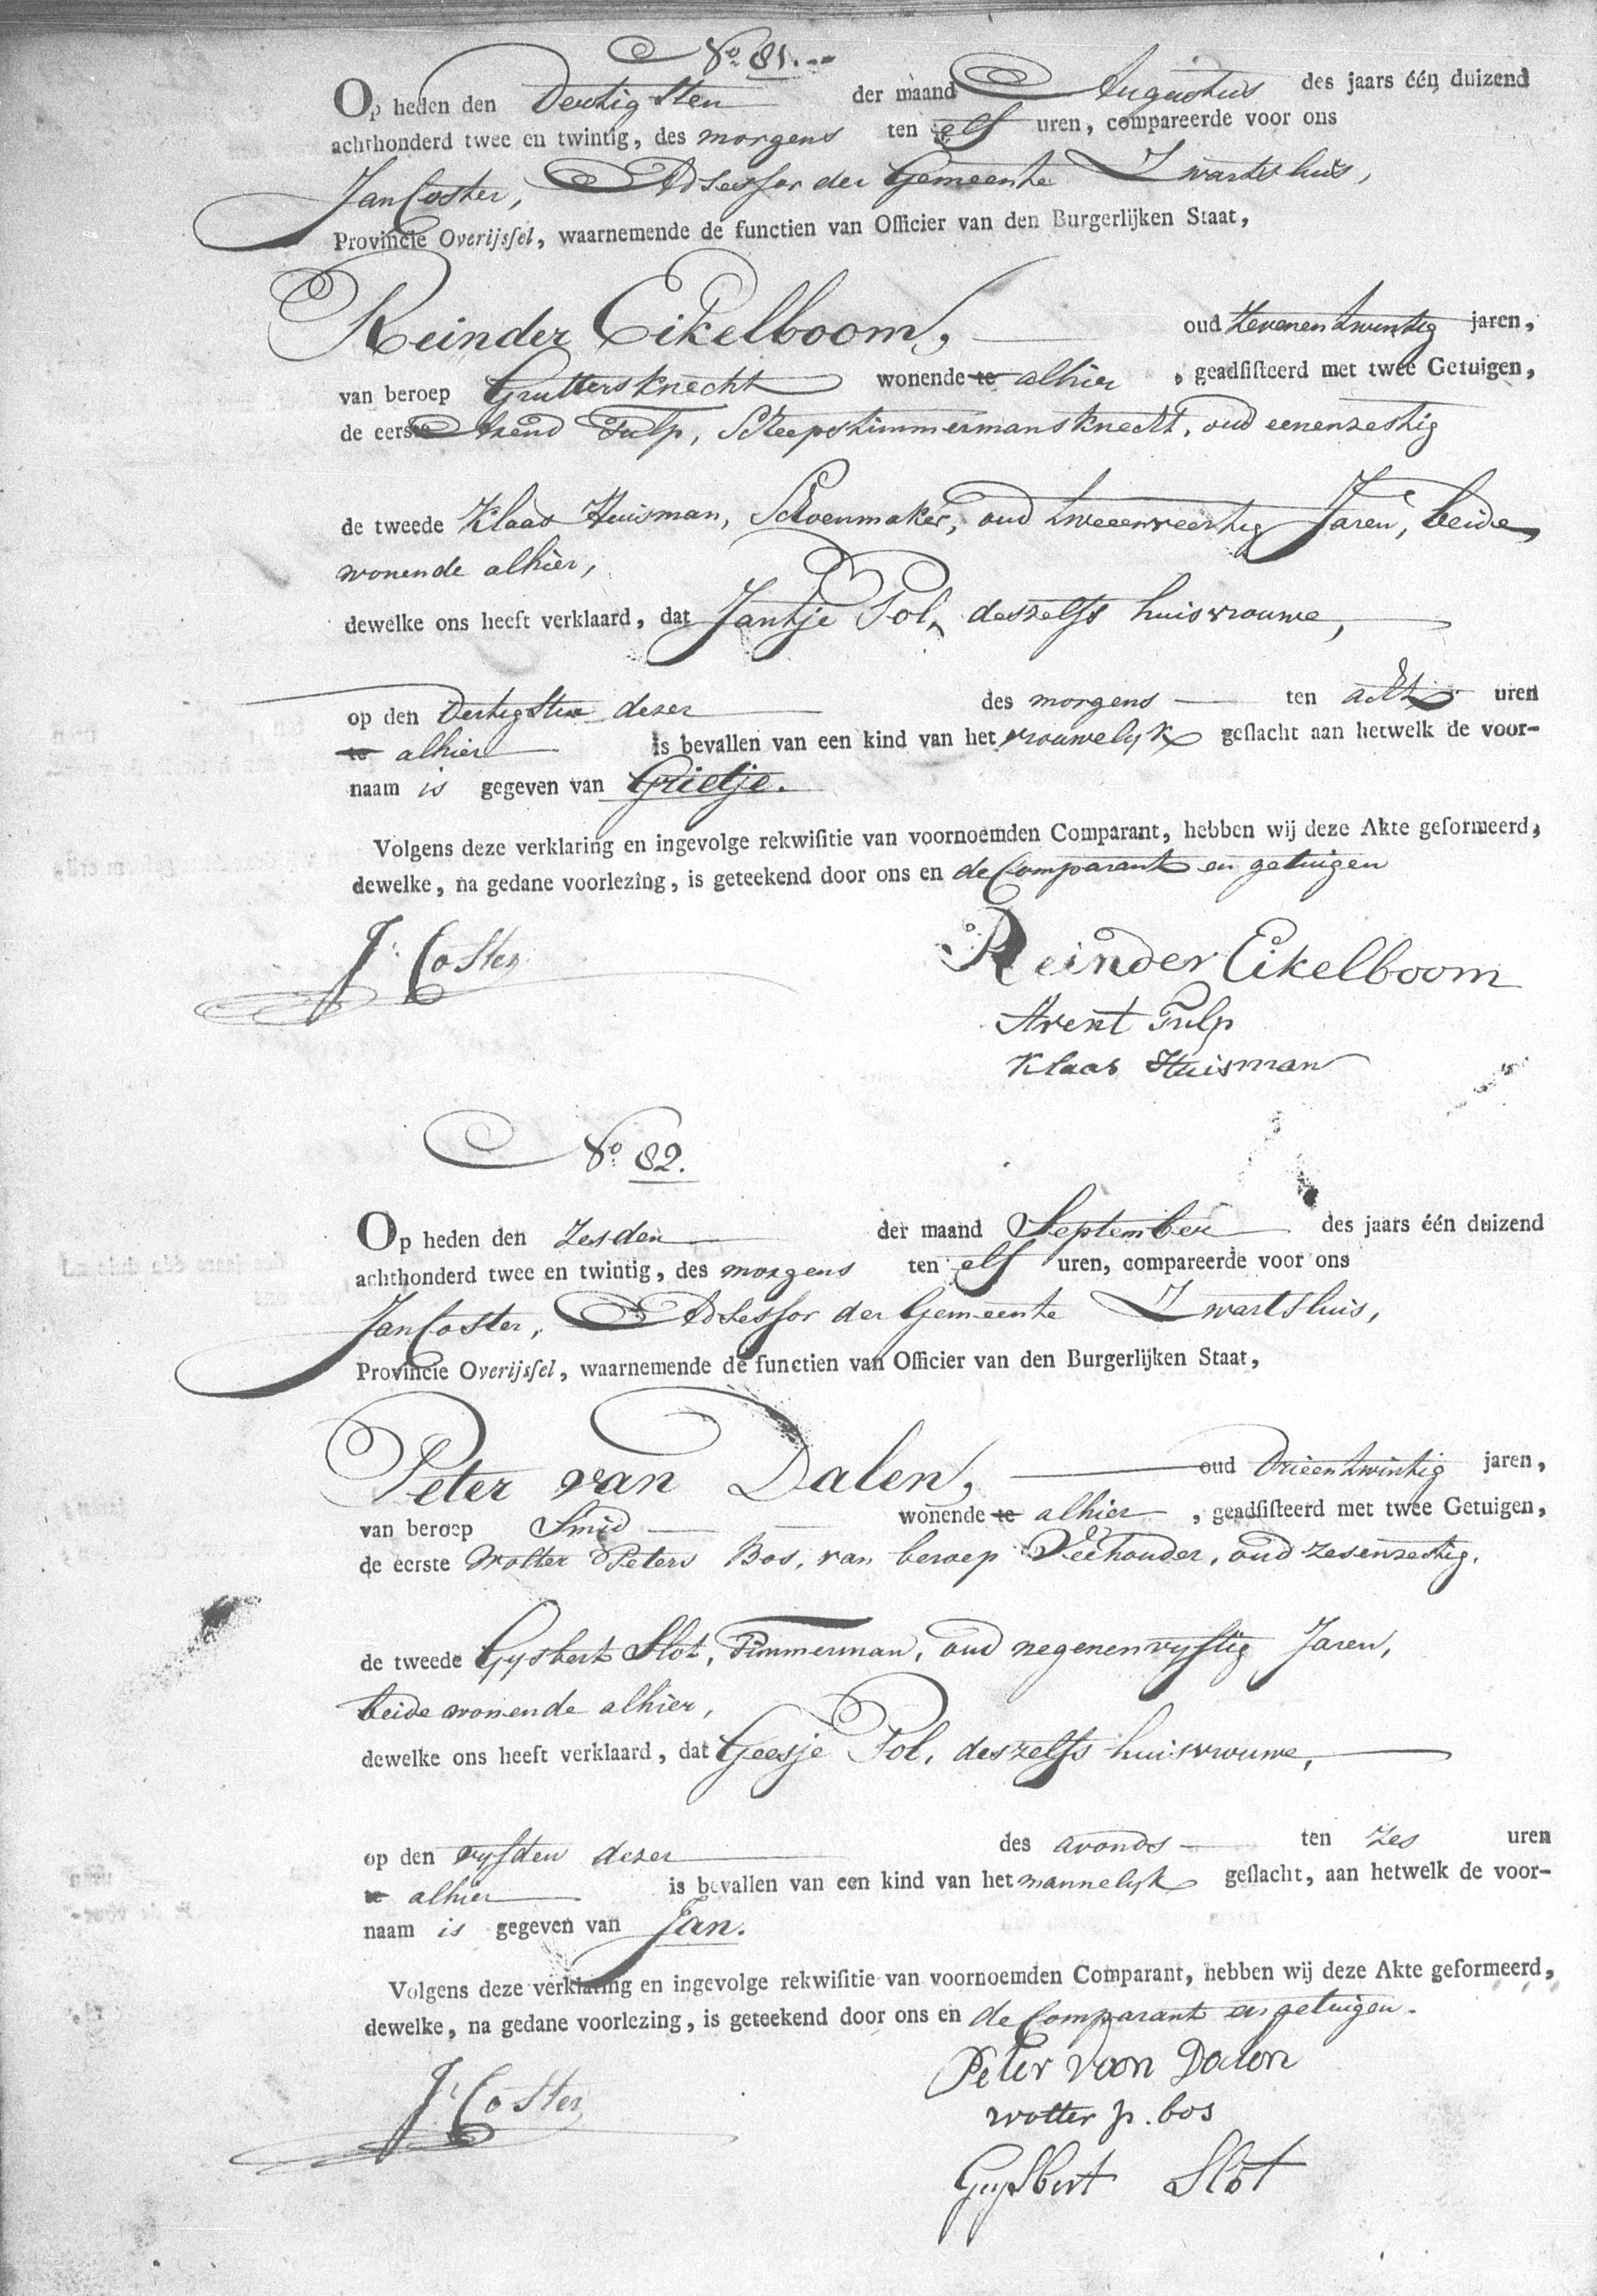 No 81.
Op heden den Dertigsten der maand Augustus des jaars één duizend
achthonderd twee en twintig, des morgens ten elf uren, compareerde voor ons
Jan Coster, Adsessor der Gemeente Zwartsluis,
Provincie Overijssel, waarnemende de functien van Officier van den Burgerlijken Staat,
Reinder Eikelboom, oud Zevenentwintig jaren,
van beroep Gruttersknecht wonende te alhier, geadsisteerd met twee Getuigen,
de eerste Arend Tulp, Scheepstimmermansknecht, oud eenenzestig
de tweede Klaas Huisman, Schoenmaker, oud tweeenveertig Jaren, beide
wonende alhier,
dewelke ons heeft verklaard, dat Jantje Pol, deszelfs huisvrouwe,
op den Dertigsten dezer des morgens ten acht uren
te alhier is bevallen van een kind van het vrouwelyk geslacht aan hetwelk de voor-
naam is gegeven van Grietje.
Volgens deze verklaring en ingevolge rekwisitie van voornoemden Comparant, hebben wij deze Akte geformeerd,
dewelke, na gedane voorlezing, is geteekend door ons en de Comparant en getuigen
J. Coster
Reinder Eikelboom
Arent Tulp
Klaas Huisman
No 82.
Op heden den zesden der maand September des jaars één duizend
achthonderd twee en twintig, des morgens ten elf uren, compareerde voor ons
Jan Coster, Adsessor der Gemeente Zwartsluis,
Provincie Overijssel, waarnemende de functien van Officier van den Burgerlijken Staat,
Peter van Dalen, oud Drieentwintig jaren,
van beroep Smid wonende te alhier, geadsisteerd met twee Getuigen,
de eerste Wolter Peters Bos, van beroep Veehouder, oud zesenzestig,
de tweede Gysbert Slot, Timmerman, oud negenenvyftig Jaren,
beide wonende alhier,
dewelke ons heeft verklaard, dat Geesje Pol, deszelfs huisvrouwe,
op den vyfden dezer des avonds ten zes uren
te alhier is bevallen van een kind van het mannelyk geslacht, aan hetwelk de voor-
naam is gegeven van Jan.
Volgens deze verklaring en ingevolge rekwisitie van voornoemden Comparant, hebben wij deze Akte geformeerd,
dewelke, na gedane voorlezing, is geteekend door ons en de Comparant en getuigen.
J. Coster
Peter van Dalen
wolter p. bos
Gysbert Slot